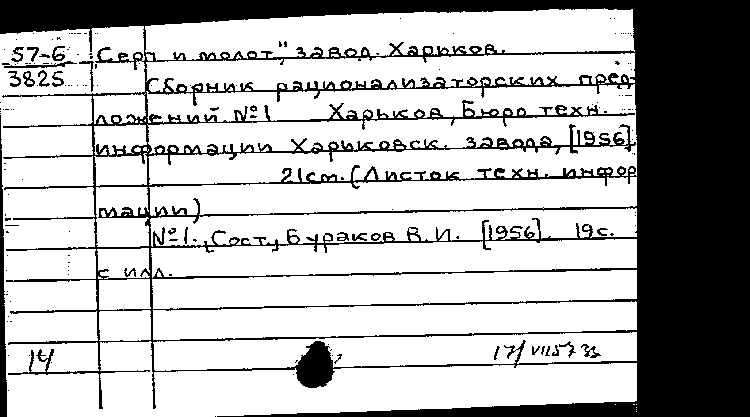 57-6 „Серп и молот", завод. Харьков.
3825 Сборник рационализаторских пред-
ложений. №1 Харьков, Бюро техн.
информации Харьковск. завода, [1956].
21 cm. (Листок техн. инфор
мации)
№1. „Сост„ Бураков В.И. [1956]. 19с.
с илл.
14 17/VII57